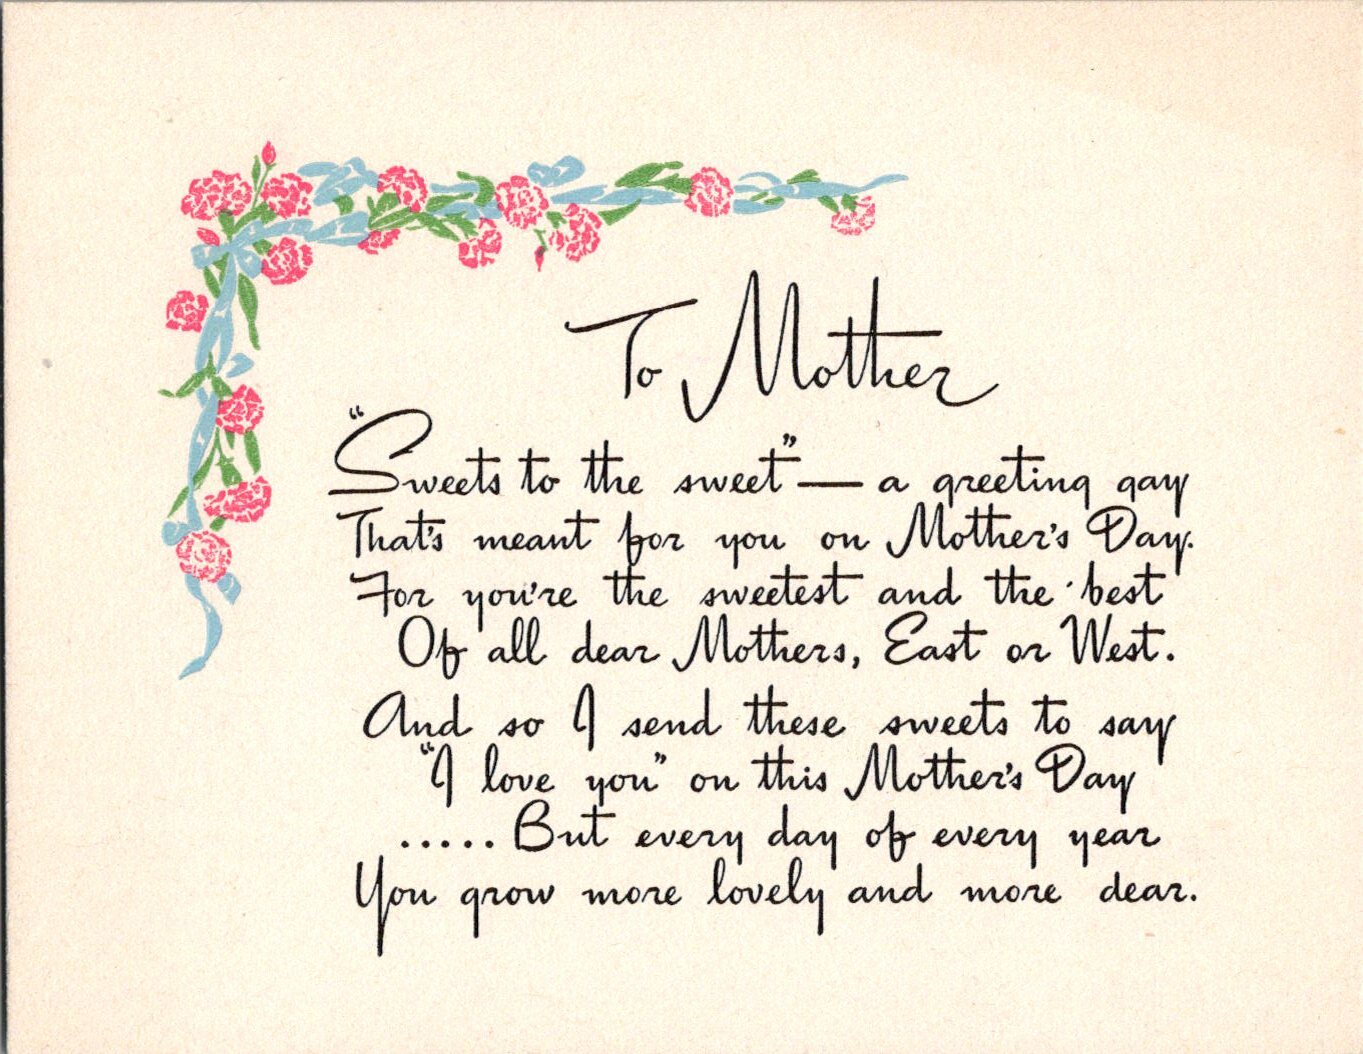 To Mother
"Sweets to the sweet" — a greeting gay
That's meant for you on Mother's Day.
For you're the sweetest and the best
Of all dear Mothers, East or West.
And so I send these sweets to say
"I love you" on this Mother's Day
.....But every day of every year
You grow more lovely and more dear.